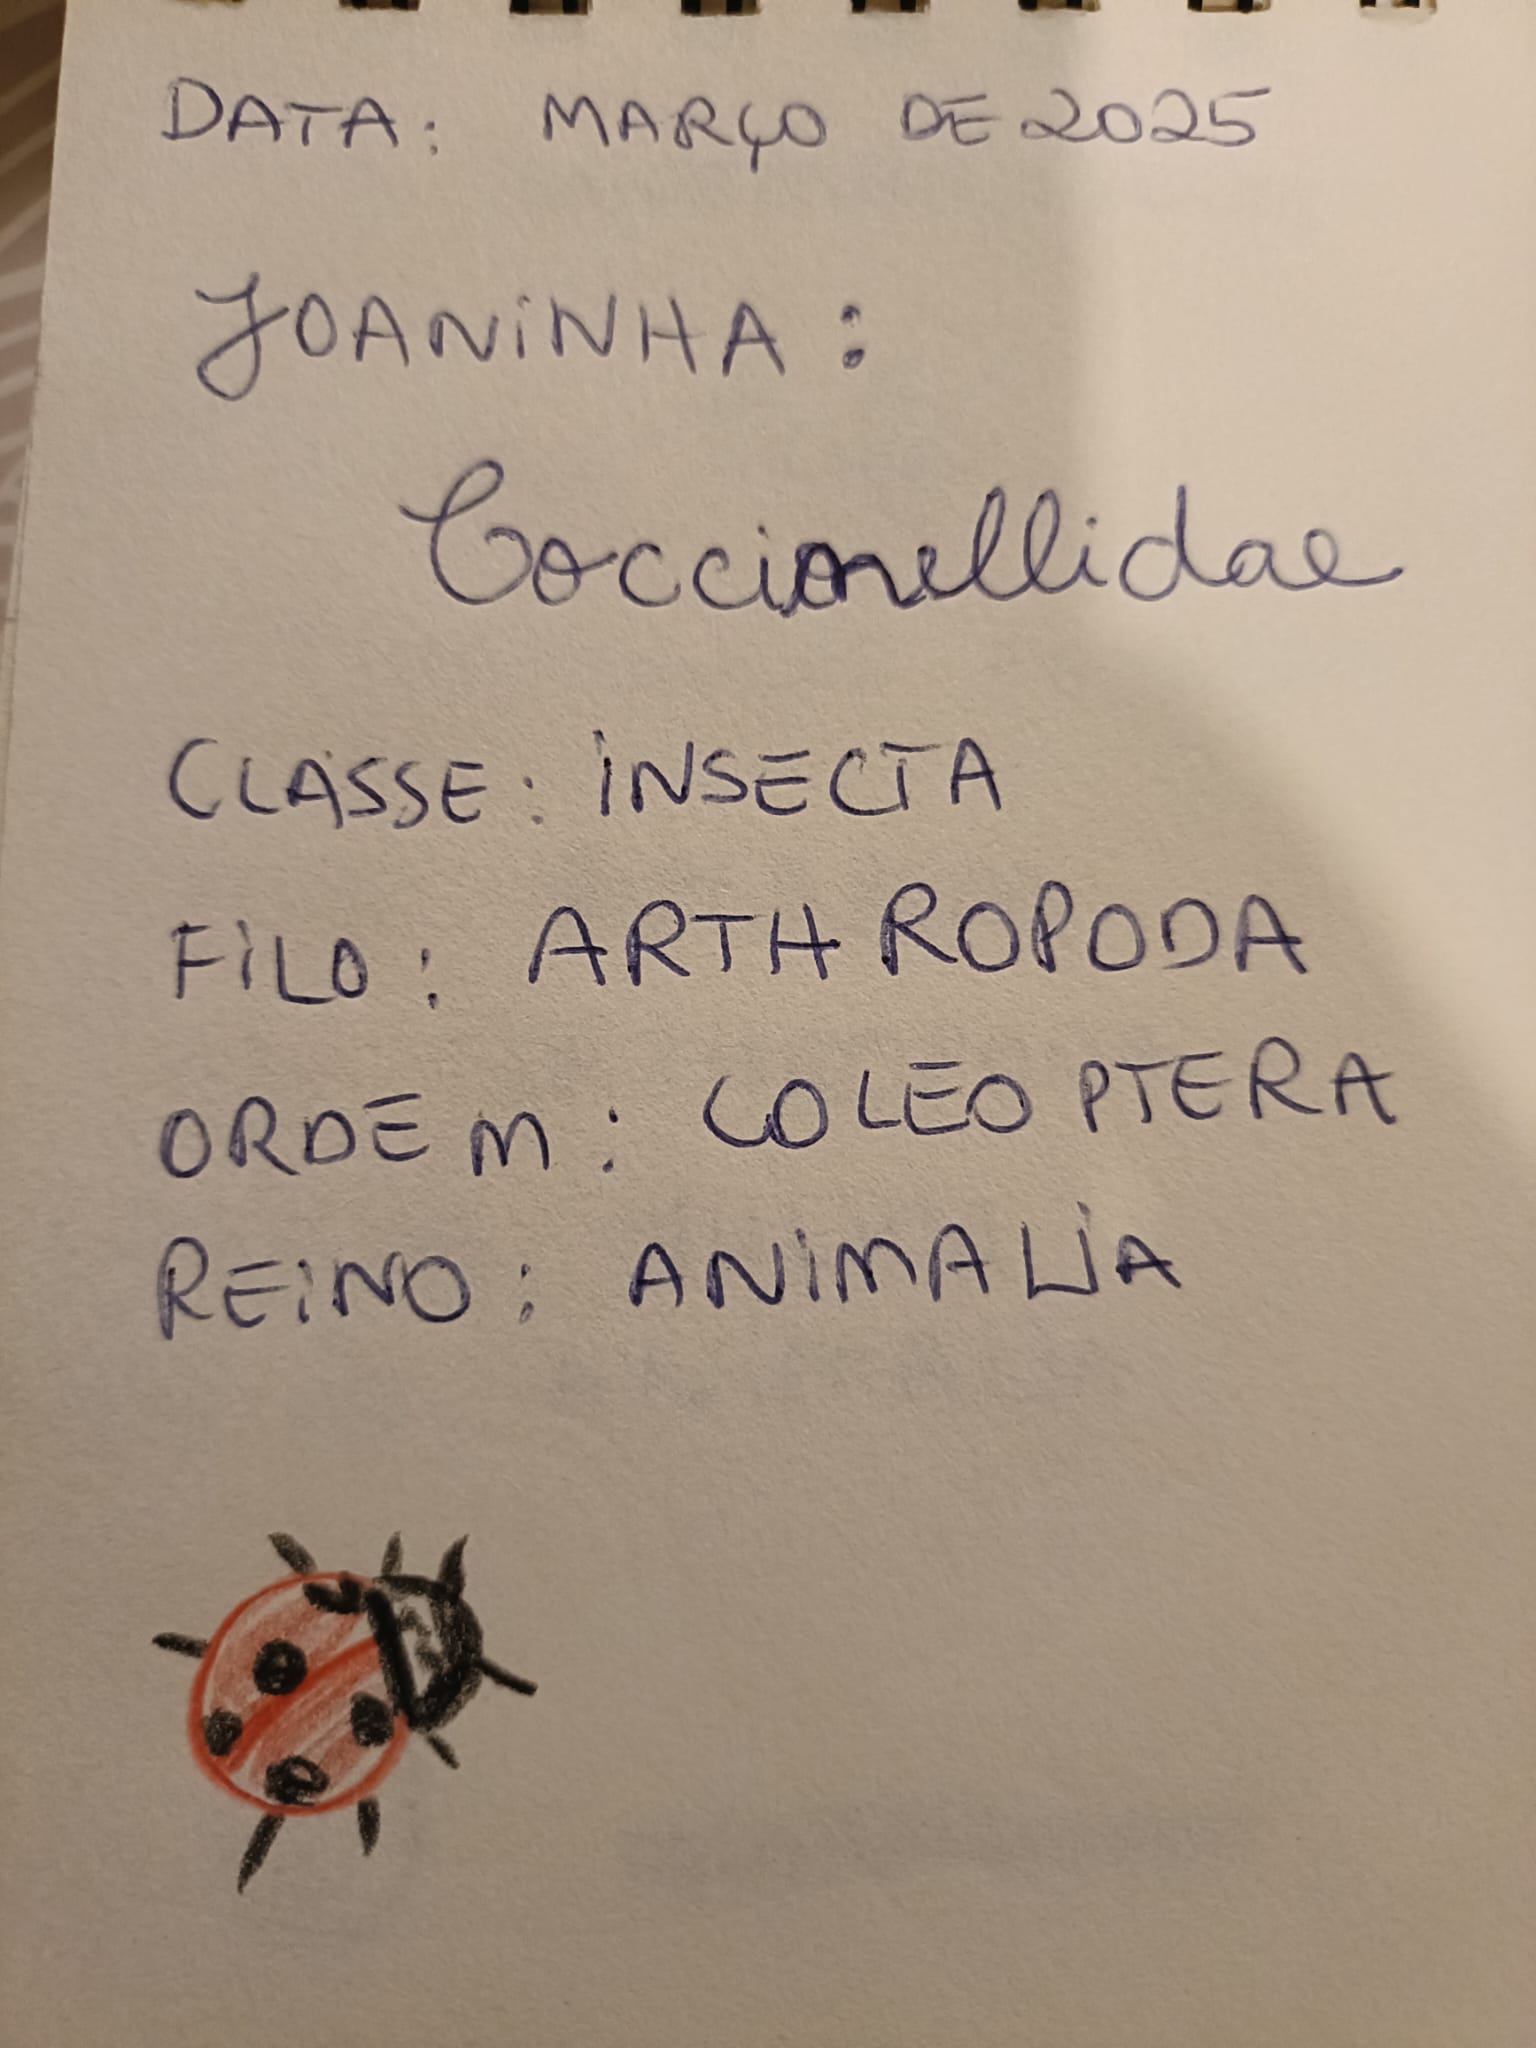 DATA: MARÇO DE 2025
JOANINHA:
Coccinellidae
CLASSE: INSECTA
FILO: ARTHROPODA
ORDEM: COLEOPTERA
REINO: ANIMALIA